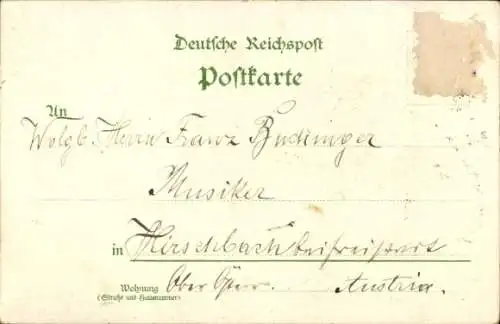 Deutsche Reichspost
Postkarte
An
Wolgb. Herrn Franz
Musiker
in Hirschbach bei Freistadt
Wohnung
(Straße und Hausnummer)
Ober Austria.